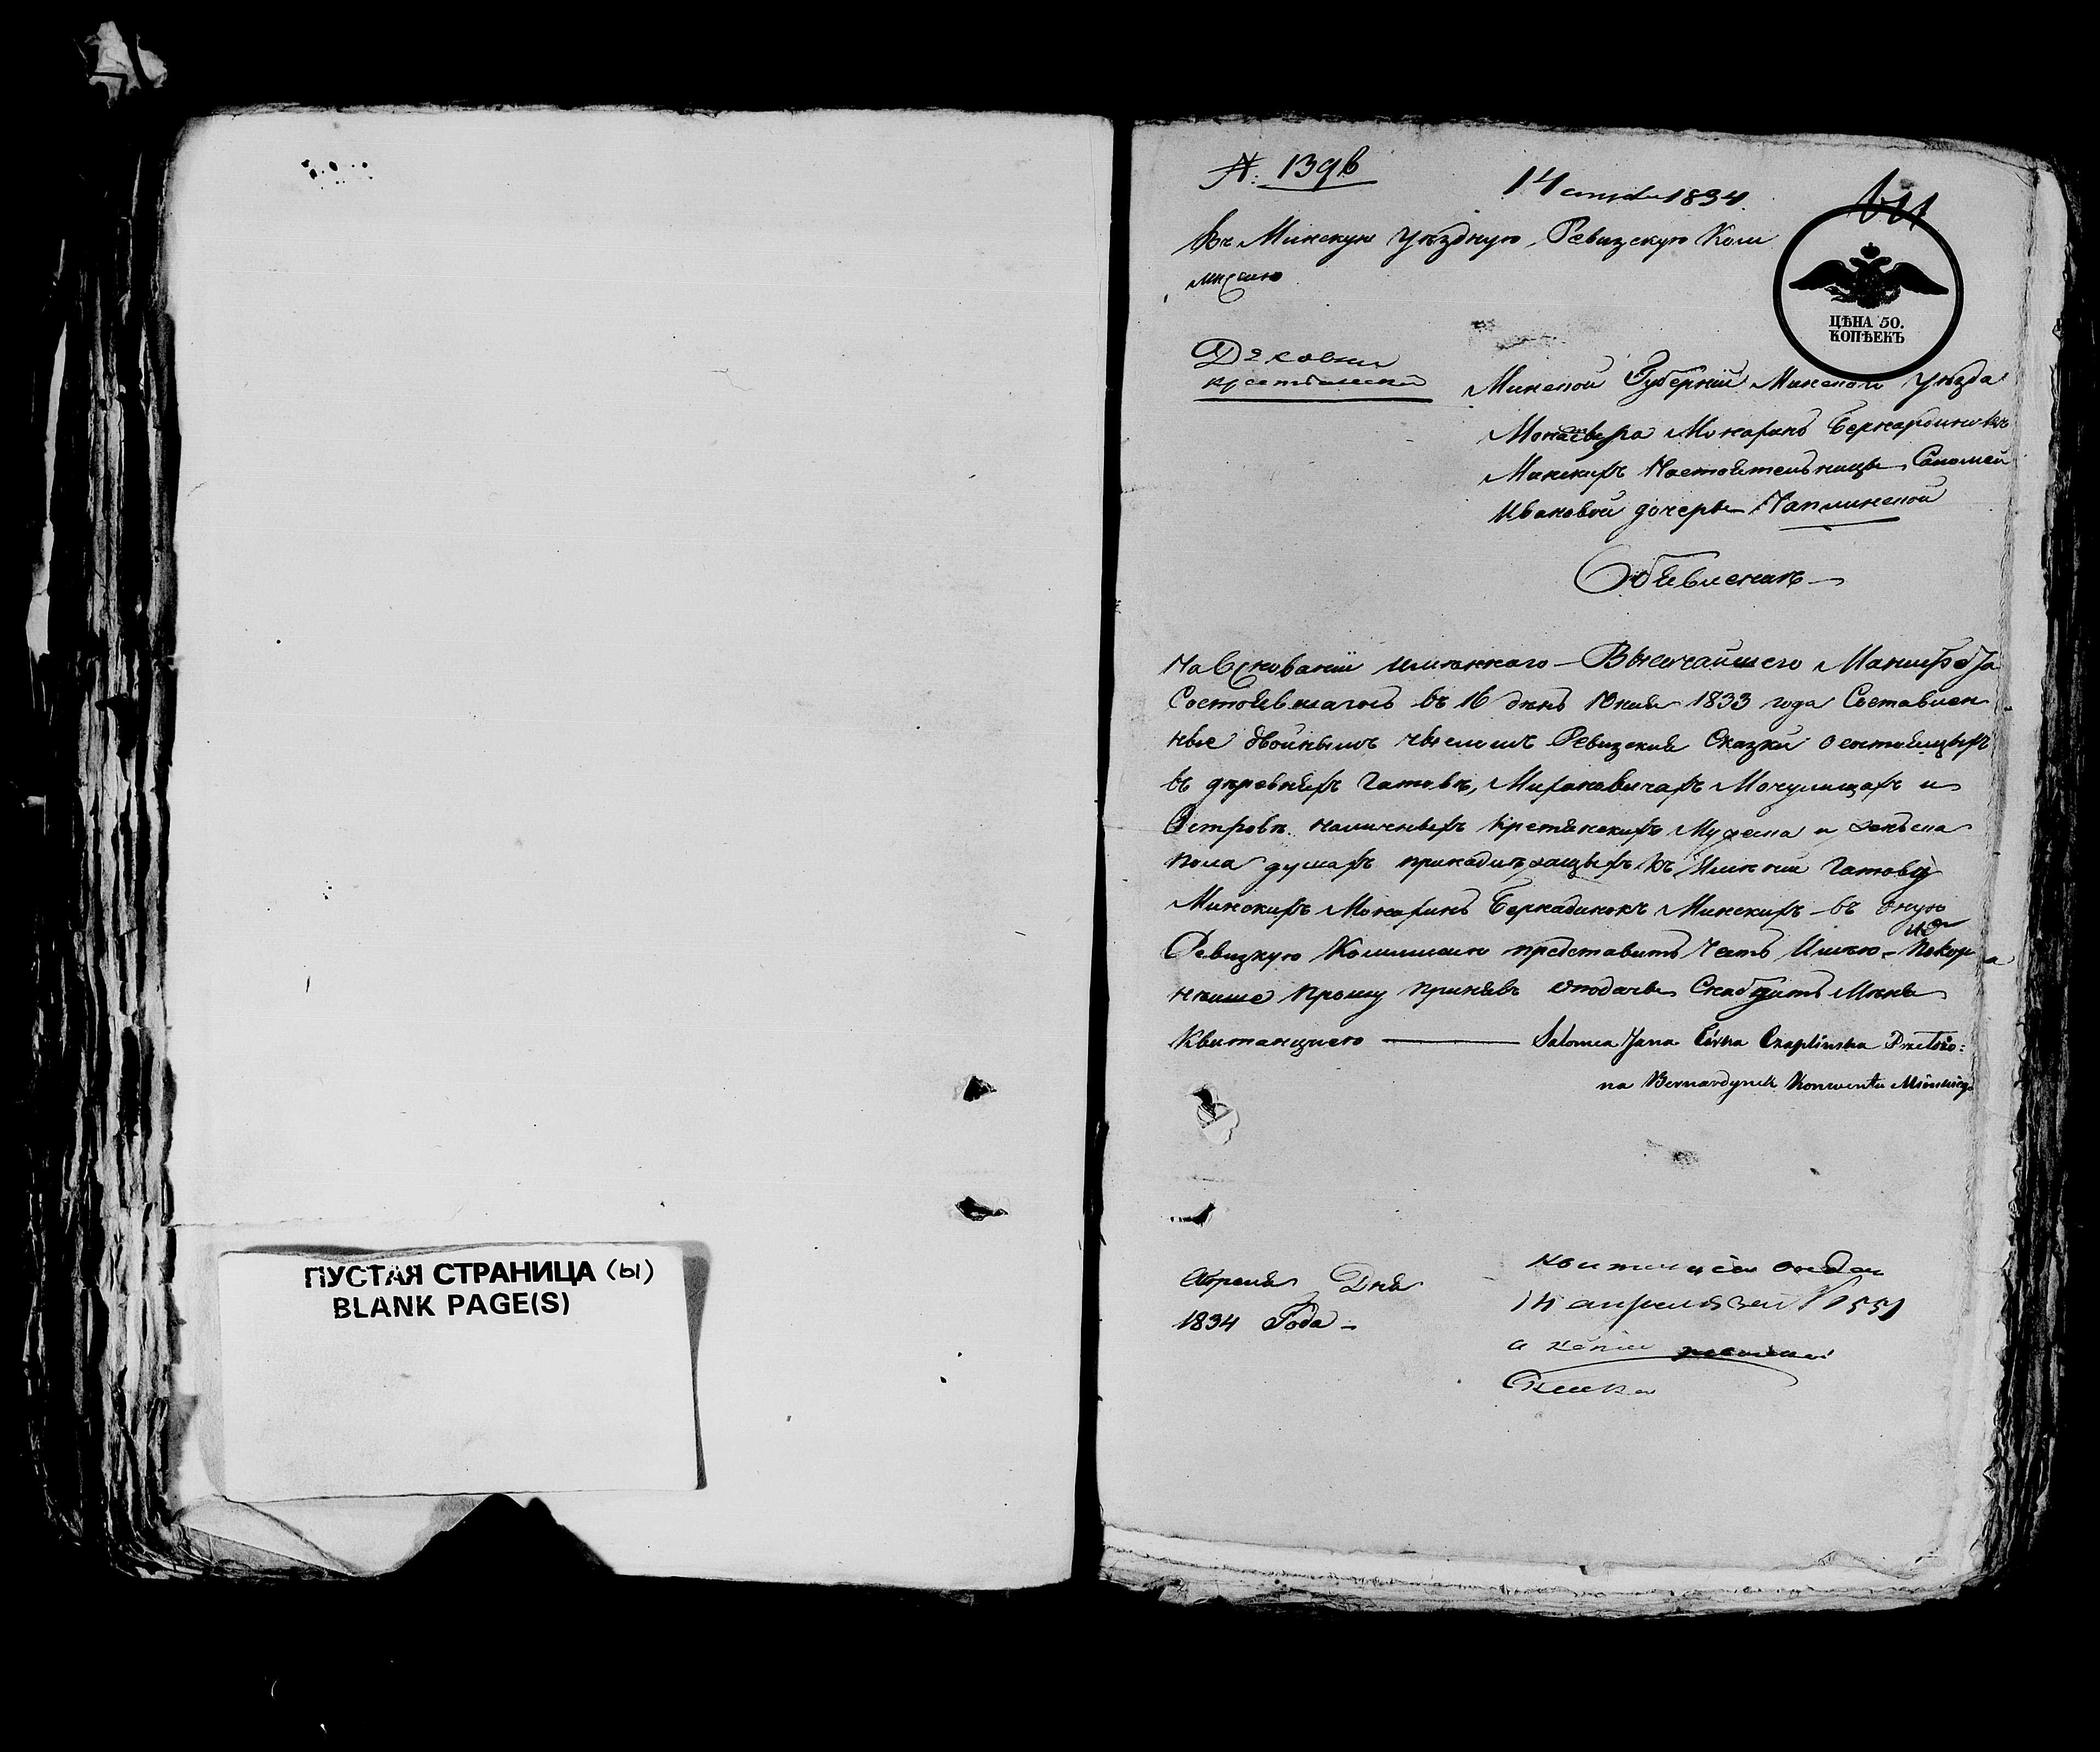 ПУСТАЯ СТРАНИЦА (ы)
BLANK PAGE(S)
№ 139
14 1834
Въ Минскую Уѣздную Ревизскую Ком
миссию
ЦѢНА 50.
КОПѢЕКЪ
Минской Губерніи Минского Уѣзда
Монахинь Бернардинокъ
Минскихъ Настоятельницы Саломеи
Ивановой дочери Чаплинской
Объявление
На Основаніи имяннаго Высочайшего Манифеста
Состоявшагось въ 16 день Юния 1833 года Составлен
ные двойнымъ числомъ Ревизския Сказки о состоящихъ
въ деревняхъ Гатовѣ, Мирановичахъ Мочулищахъ и
Островѣ наличныхъ Кретянскихъ Мужеска и женска
пола душахъ принадлежащихъ къ Имѣнии Гатову
Минскихъ Монахинь Бернадинокъ Минскихъ въ оную
Ревизкую Коммисию представить Честь Имѣю Покор
нѣише Прошу Принявъ Снабдить Меня
Квитанциею Salomea Jana Córka Czaplinska Przełożo:
na Bernardynek Konwentu Minskiego
Апреля Дня
1834 Года
квитанция
14 апреля 551
а копии